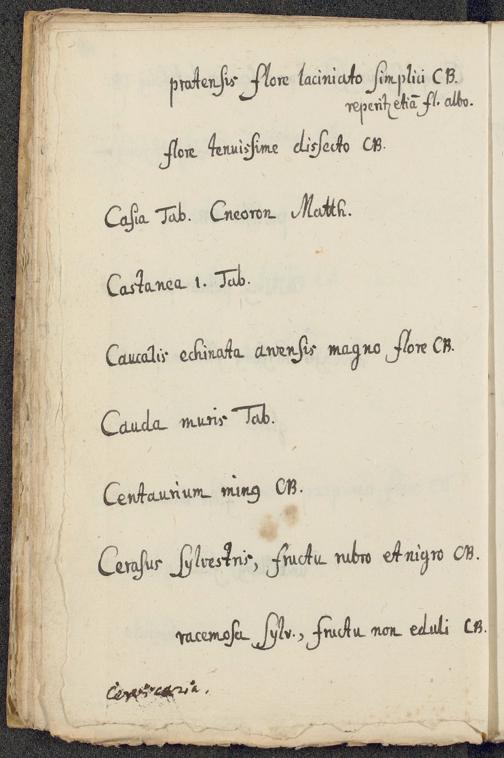 pratensis flore laciniato simplici CB.
reperit etiã fl. albo.
flore tenuissime dissecto CB.
Casia Tab. Cneoron Matth.
Castanea 1. Tab.
Caucalis echinata arvensis magno flore CB.
Cauda muris Tab.
Centaurium minꝰ CB.
Cerasus sylvestris, fructu rubro et nigro CB.
racemosa sylv., fructu non eduli CB.
Cervicaria.